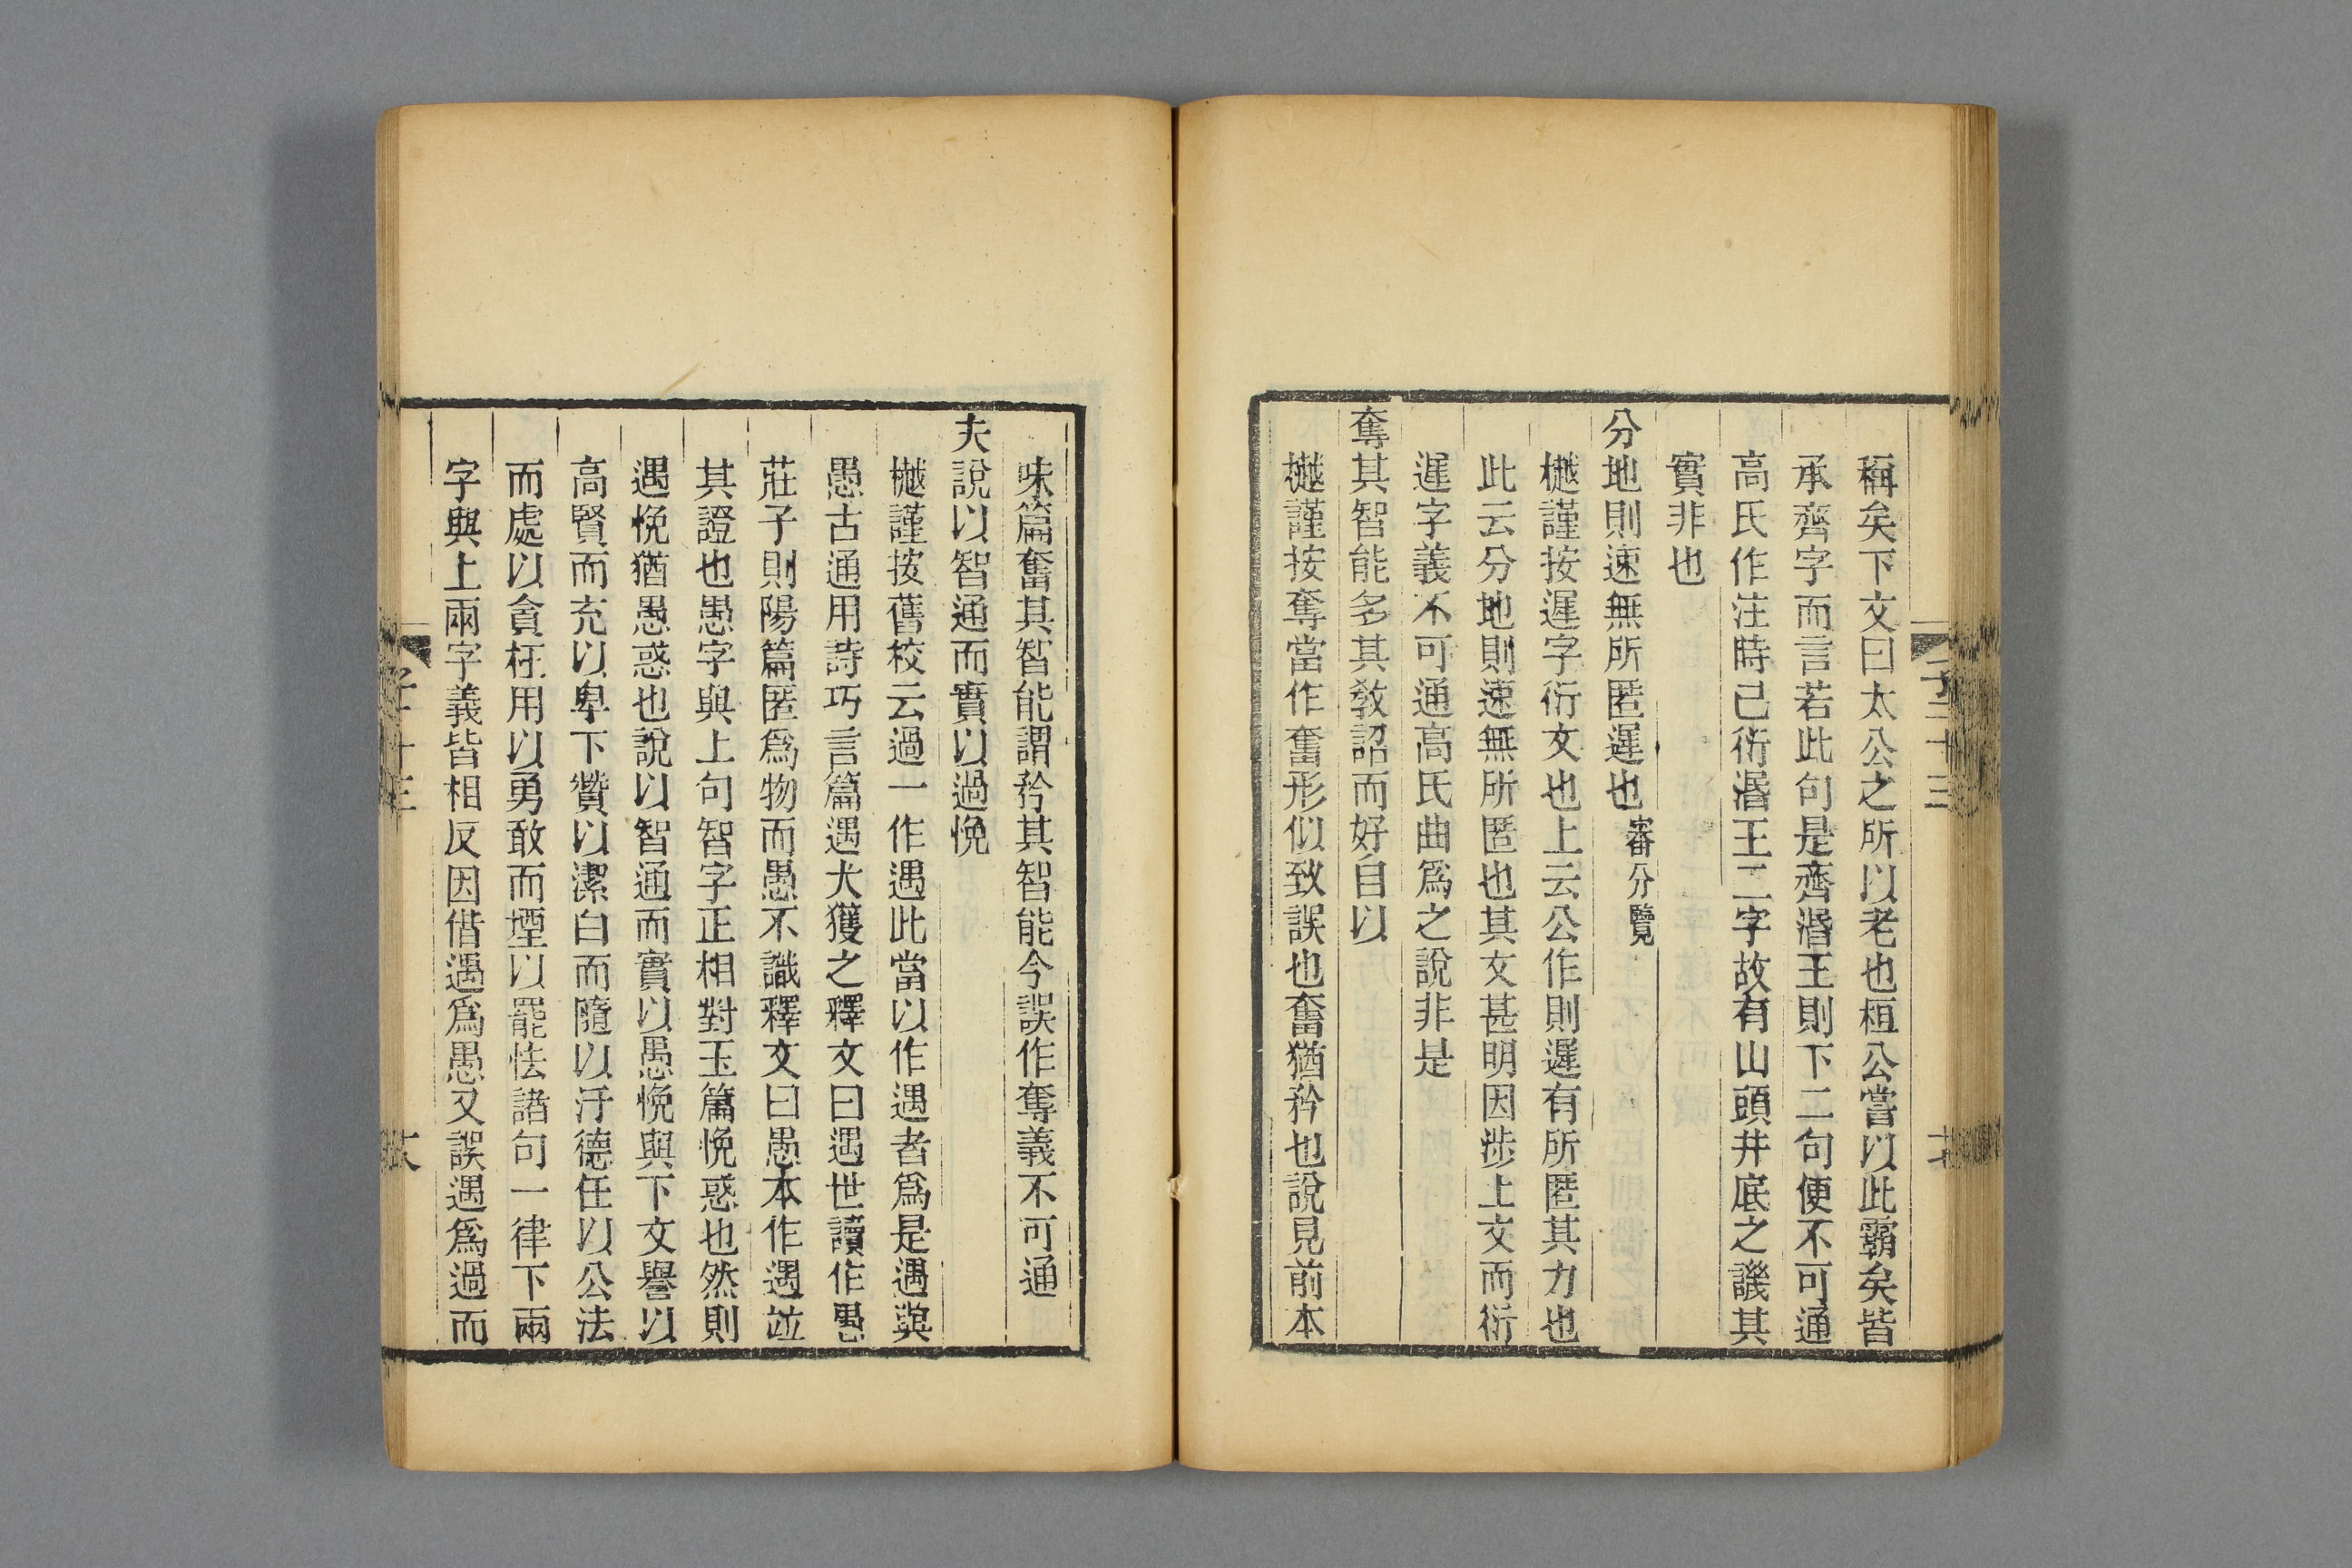 稱矣下文曰太公之所以老也桓公嘗以此霸矣皆
承齊字而言若此句是齊湣王則下二句便不可通
高氏作注時已衍湣王二字故有山頭井底之譏其
實非也
分地則速無所匿遲也審分覽
樾謹按遲字衍文也上云公作則遲有所匿其力也
此云分地則速無所匿也其文甚明因涉上文而衍
遲字義不可通高氏曲爲之說非是
奪其智能多其敎詔而好自以
樾謹按奪當作奮形似致誤也奮猶矜也說見前本
味篇奮其智能謂矜其智能今誤作奪義不可通
夫說以智通而實以過悗
樾謹按舊校云過一作遇此當以作遇者爲是遇與
愚古通用詩巧言篇遇犬獲之釋文曰遇世讀作愚
莊子則陽篇匿爲物而愚不識釋文曰愚本作遇竝
其證也愚字與上句智字正相對玉篇悗惑也然則
遇悗猶愚惑也說以智通而實以愚悗與下文譽以
高賢而充以卑下贊以潔白而隨以汙德任以公法
而處以貪枉用以勇敢而堙以罷怯諸句一律下兩
字與上兩字義皆相反因借遇爲愚又誤遇爲過而